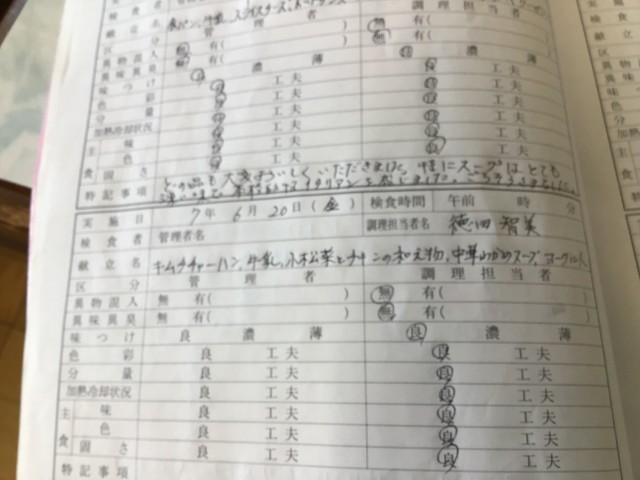 食パン、牛乳、
管理者 調理担当者
区分
異物混入 無 有( ) 無 有( )
異味異臭 無 有( ) 無 有( )
味つけ 良 濃 薄 良 濃 薄
色彩 良 工夫 良 工夫
分量 良 工夫 良 工夫
加熱冷却状況 良 工夫 良 工夫
主食 味 良 工夫 良 工夫
色 良 工夫 良 工夫
固さ 良 工夫 良 工夫
どの品も大変おいしくいただきました。特にスープはとても
特記事項
実施日 7年 6月 20日(金) 検食時間 午前 時 分
検食者 管理者名 調理担当者名 徳田 智美
献立名 キムチチャーハン、牛乳、小松菜とツナの和え物、中華わかめスープ ヨーグルト
区分 管理者 調理担当者
異物混入 無 有( ) 無 有( )
異味異臭 無 有( ) 無 有( )
味つけ 良 濃 薄 良 濃 薄
色彩 良 工夫 良 工夫
分量 良 工夫 良 工夫
加熱冷却状況 良 工夫 良 工夫
主食 味 良 工夫 良 工夫
色 良 工夫 良 工夫
固さ 良 工夫 良 工夫
特記事項